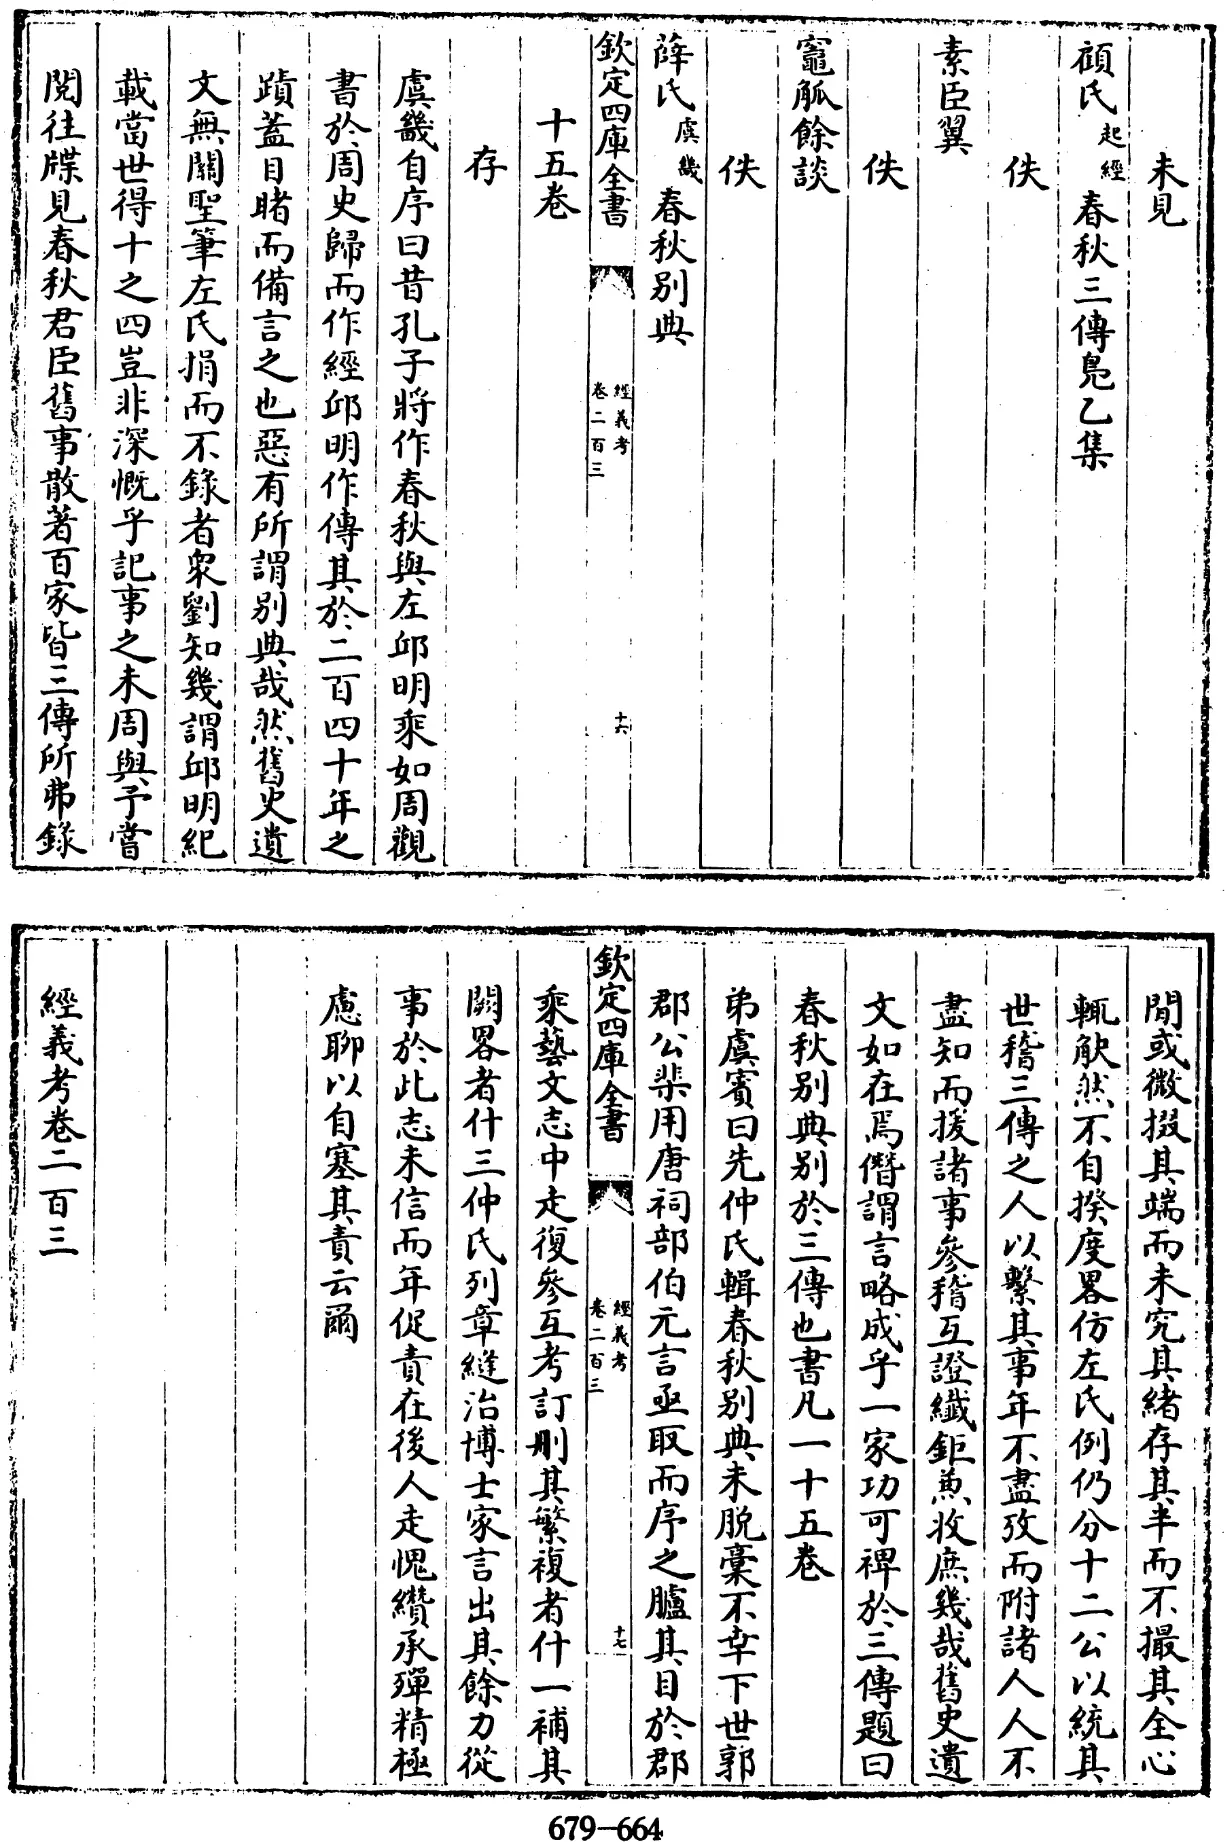 未見
顧氏起經春秋三傳鳧乙集
佚
素臣翼
佚
竈觚餘談
佚
薛氏虞畿春秋別典
欽定四庫全書
經義考
卷二百三
十六
十五卷
存
虞畿自序曰昔孔子將作春秋與左邱明乘如周觀
書於周史歸而作經邱明作傳其於二百四十年之
蹟蓋目睹而備言之也惡有所謂別典哉然舊史遺
文無關聖筆左氏捐而不錄者衆劉知幾謂邱明紀
載當世得十之四豈非深慨乎記事之未周與予嘗
閱往牒見春秋君臣舊事散著百家皆三傳所弗錄
間或微掇其端而未究其緒存其半而不撮其全心
輒觖然不自揆度畧仿左氏例仍分十二公以統其
世稽三傳之人以繫其事年不盡攷而附諸人人不
盡知而援諸事參稽互證纖鉅兼收庶幾哉舊史遺
文如在焉僭謂言略成乎一家功可裨於三傳題曰
春秋別典別於三傳也書凡一十五卷
弟虞賓曰先仲氏輯春秋別典未脫稾不幸下世郭
郡公棐用唐祠部伯元言亟取而序之臚其目於郡
欽定四庫全書
經義考
卷二百三
十七
乘藝文志中走復參互考訂刪其繁複者什一補其
闕畧者什三仲氏列章縫治博士家言出其餘力從
事於此志未信而年促責在後人走愧纘承殫精極
慮聊以自塞其責云爾
經義考卷二百三
679-664